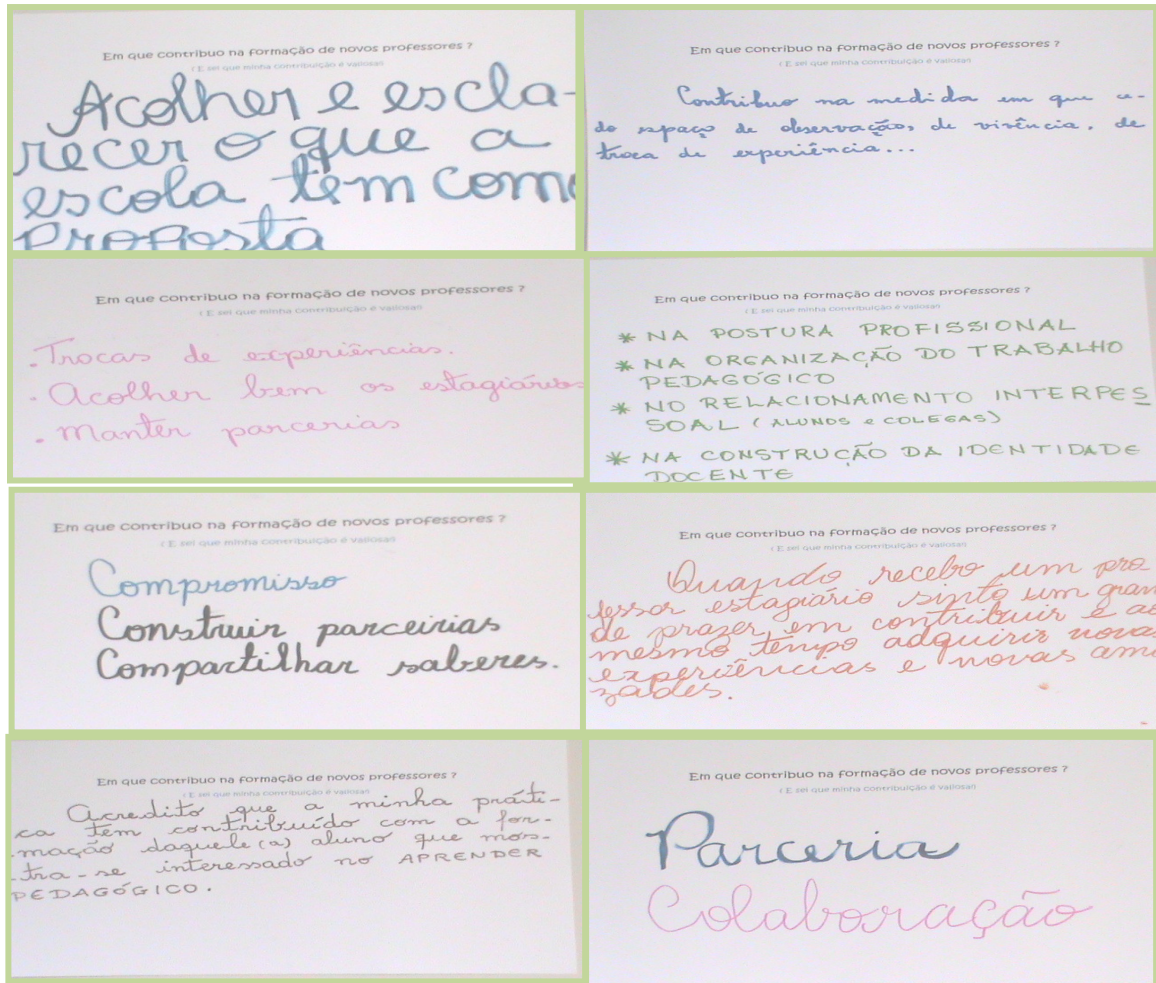 Em que contribuo na formação de novos professores ?
( E sei que minha contribuição é valiosa)
Acolher e escla-
recer o que a
escola tem como
proposta
Em que contribuo na formação de novos professores ?
( E sei que minha contribuição é valiosa)
Contribuo na medida em que ce-
do espaço de observação, de vivência, de
troca de experiência...
Em que contribuo na formação de novos professores ?
( E sei que minha contribuição é valiosa)
. Trocas de experiências.
. Acolher bem os estagiários
. Manter parcerias
Em que contribuo na formação de novos professores ?
( E sei que minha contribuição é valiosa)
* NA POSTURA PROFISSIONAL
* NA ORGANIZAÇÃO DO TRABALHO
PEDAGÓGICO
* NO RELACIONAMENTO INTERPES
SOAL ( ALUNOS e COLEGAS)
* NA CONSTRUÇÃO DA IDENTIDADE
DOCENTE
Em que contribuo na formação de novos professores ?
( E sei que minha contribuição é valiosa)
Compromisso
Construir parceirias
Compartilhar saberes.
Em que contribuo na formação de novos professores ?
( E sei que minha contribuição é valiosa)
Quando recebo um pro
fessor estagiário sinto um gran
de prazer em contribuir e ao
mesmo tempo adquirir novas
experiências e novas ami
zades.
Em que contribuo na formação de novos professores ?
( E sei que minha contribuição é valiosa)
Acredito que a minha práti-
ca tem contribuído com a for-
mação daquele (a) aluno que mos-
tra-se interessado no APRENDER
PEDAGÓGICO.
Em que contribuo na formação de novos professores ?
( E sei que minha contribuição é valiosa)
Parceria
Colaboração